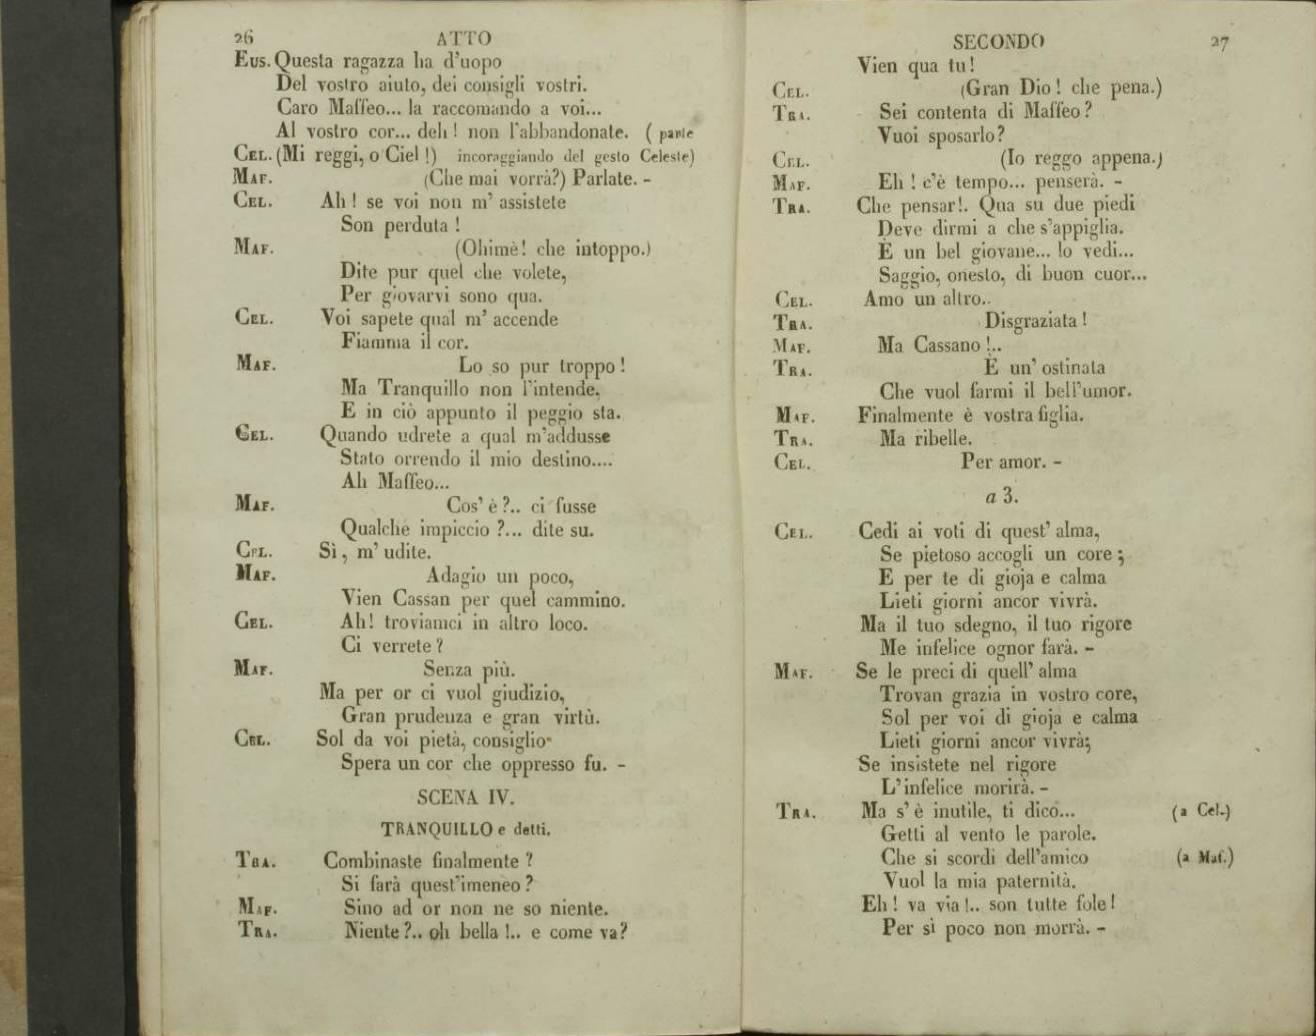 26 ATTO
Eus. Questa ragazza ha d'uopo
Del vostro aiuto, dei consigli vostri.
Caro Maffeo... la raccomando a voi...
Al vostro cor... deh ! non l'abbandonate. ( parte
Cel. (Mi reggi, o Ciel !) incoraggiando del gesto Celeste)
Maf. (Che mai vorrà?) Parlate. -
Cel. Ah ! se voi non m' assistete
Son perduta !
Maf. (Ohimè! che intoppo.)
Dite pur quel che volete,
Per giovarvi sono qua.
Cel. Voi sapete qual m' accende
Fiamma il cor.
Maf. Lo so pur troppo !
Ma Tranquillo non l'intende,
E in ciò appunto il peggio sta.
Cel. Quando udrete a qual m'addusse
Stato orrendo il mio destino....
Ah Maffeo...
Maf. Cos' è ?.. ci fusse
Qualche impiccio ?... dite su.
Cel. Sì, m' udite.
Maf. Adagio un poco,
Vien Cassan per quel cammino.
Cel. Ah! troviamci in altro loco.
Ci verrete ?
Maf. Senza più.
Ma per or ci vuol giudizio,
Gran prudenza e gran virtù.
Cel. Sol da voi pietà, consiglio
Spera un cor che oppresso fu. -
SCENA IV.
TRANQUILLO e detti.
Tra. Combinaste finalmente ?
Si farà quest'imeneo ?
Maf. Sino ad or non ne so niente.
Tra. Niente ?.. oh bella !.. e come va?
SECONDO 27
Vien qua tu !
Cel. (Gran Dio ! che pena.)
Tra. Sei contenta di Maffeo ?
Vuoi sposarlo ?
Cel. (Io reggo appena.)
Maf. Eh ! c'è tempo... penserà. -
Tra. Che pensar!. Qua su due piedi
Deve dirmi a che s'appiglia.
È un bel giovane... lo vedi...
Saggio, onesto, di buon cuor...
Cel. Amo un altro..
Tra. Disgraziata !
Maf. Ma Cassano !..
Tra. È un' ostinata
Che vuol farmi il bell'umor.
Maf. Finalmente è vostra figlia.
Tra. Ma ribelle.
Cel. Per amor. -
a 3.
Cel. Cedi ai voti di quest' alma,
Se pietoso accogli un core ;
E per te di gioja e calma
Lieti giorni ancor vivrà.
Ma il tuo sdegno, il tuo rigore
Me infelice ognor farà. -
Maf. Se le preci di quell' alma
Trovan grazia in vostro core,
Sol per voi di gioja e calma
Lieti giorni ancor vivrà;
Se insistete nel rigore
L'infelice morirà. -
Tra. Ma s' è inutile, ti dico... (a Cel.)
Getti al vento le parole.
Che si scordi dell'amico (a Maf.)
Vuol la mia paternità.
Eh ! va via !.. son tutte fole !
Per sì poco non morrà. -